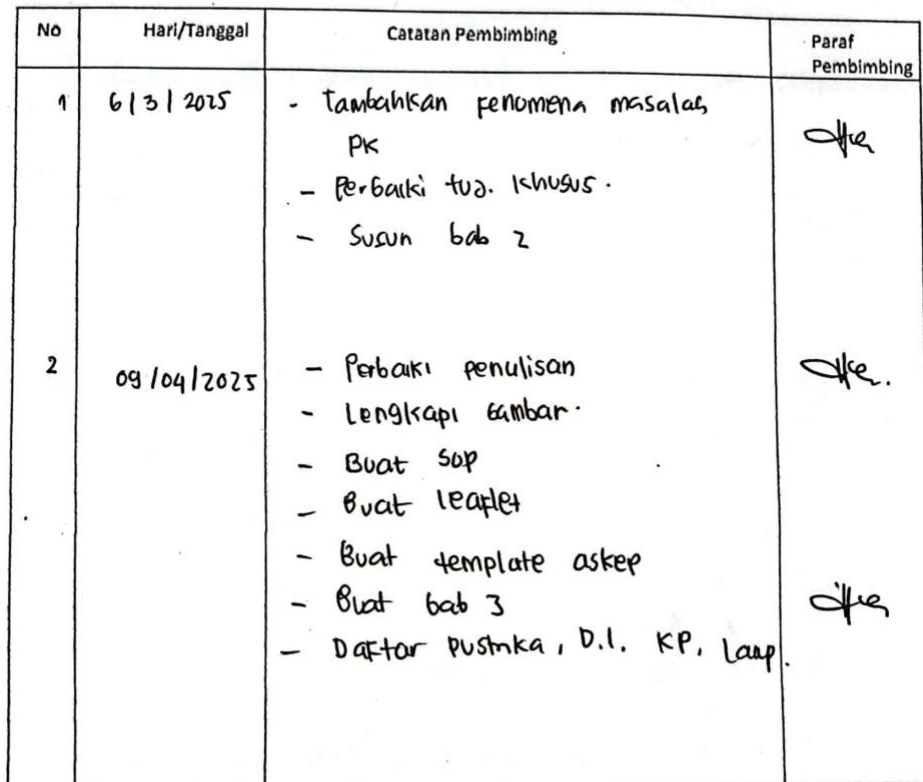 No Hari/Tanggal Catatan Pembimbing Paraf Pembimbing
1 6/3/2025 - Tambahkan fenomena masalah
PK
- Perbaiki tuj. khusus.
- Susun bab 2
2 09/04/2025 - Perbaiki penulisan
- Lengkapi Gambar.
- Buat SOP
- Buat leaflet
- Buat template askep
- Buat bab 3
- Daftar pustaka, D.I. KP, Lamp.